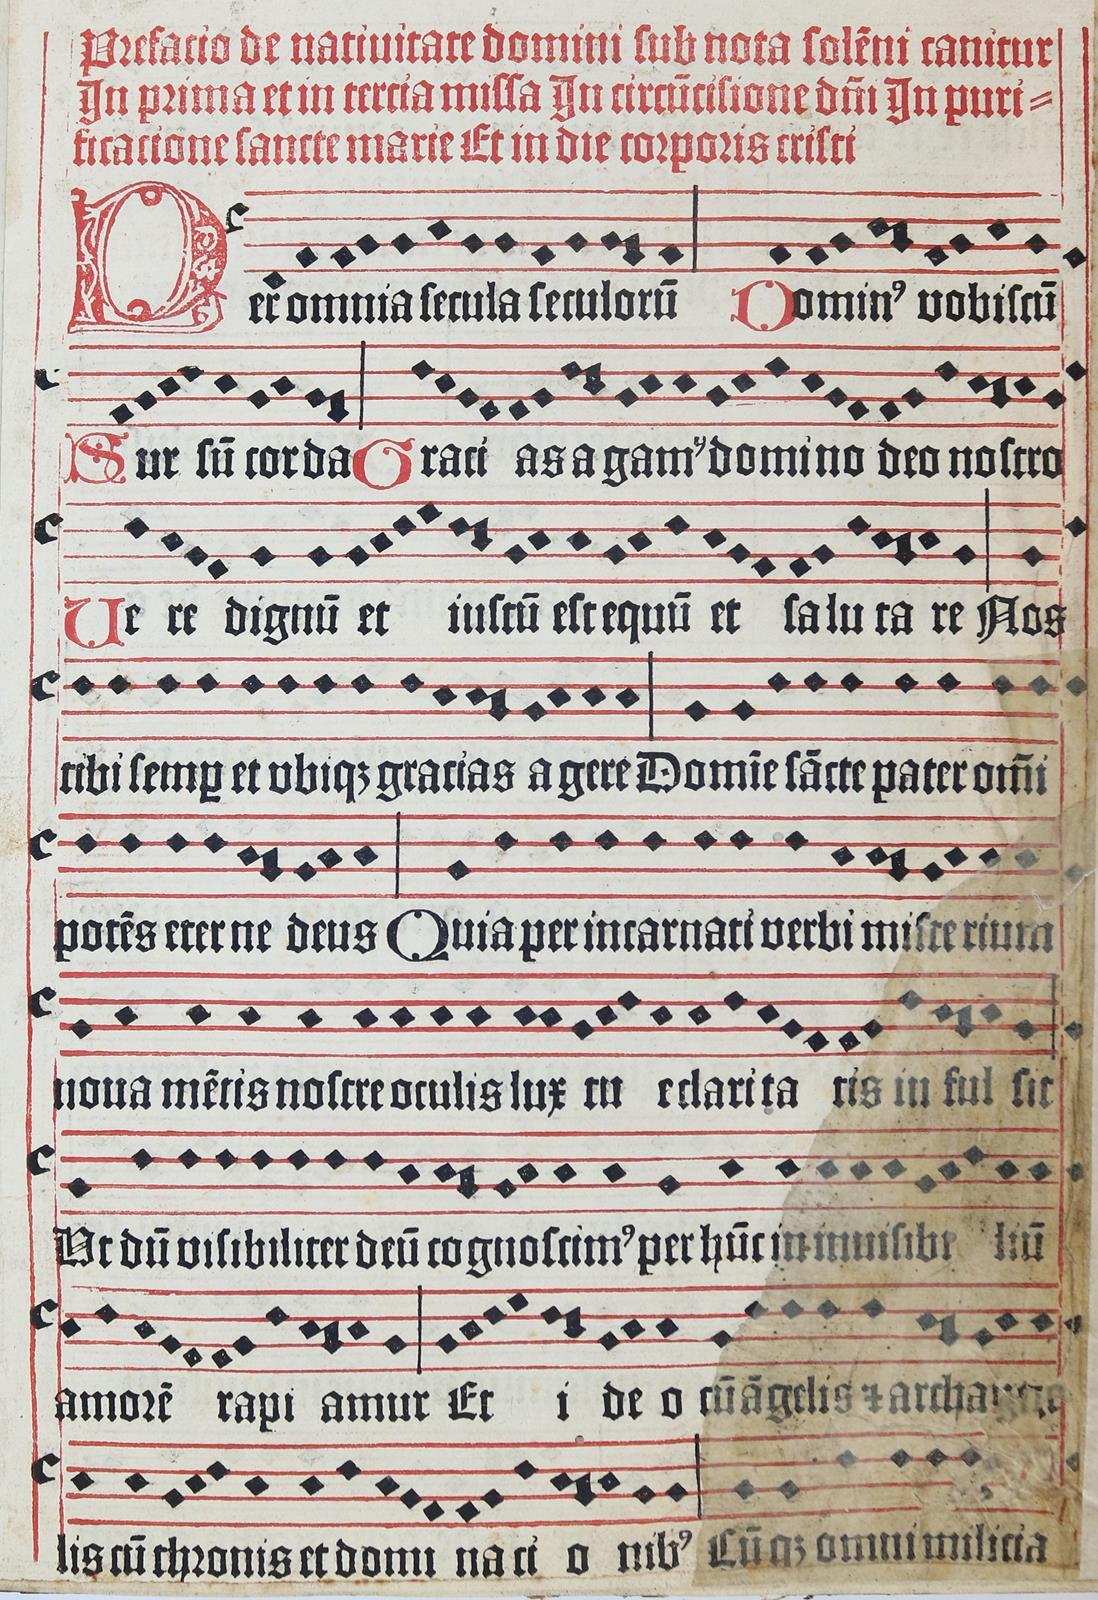 Prefacio de natiuitate domini sub nota solēni canitur
In prima et in tercia missa In circūcisione dn̄i In puri=
ficacione sancte marie Et in die corporis cristi
Per omnia secula seculorū Dominꝰ vobiscū
Sur sū corda Graci as a gamꝰ domino deo nostro
Ue re dignū et iustū est equū et salu ta re Nos
tibi semꝑ et vbiqꝫ gracias agere Domīe sācte pater om̄i
potēs eterne deus Quia per incarnati verbi misterium
noua mētis nostre oculis lux tu e clarita tis in ful sit
Ut dū visibiliter deū cognoscimꝰ per hūc in inuisibi liū
amorē rapi amur Et i de o cū āgelis ⁊ archange
lis cū thronis et domi naci o nibꝰ Cūqꝫ omni milicia